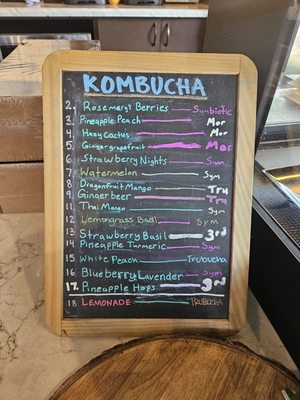 KOMBUCHA
2. Rosemary's Berries Symbiotic
3. Pineapple Peach Mor
4. Hazy Cactus Mor
5. Ginger grapefruit Mor
6. Strawberry Nights Sym
7. Watermelon Sym
8. Dragonfruit Mango Tru
9. Ginger beer Tru
11. Thai Mango Sym
12 Lemongrass Basil Sym
13 Strawberry Basil 3rd
14 Pineapple Turmeric Sym
15. White Peach Trubucha
16. Blueberry Lavender Sym
17. Pineapple Hops 3rd
18 LEMONADE TRUBUCHA